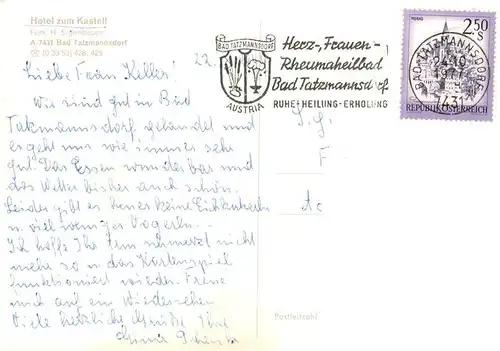 Hotel zum Kastell
Fam. H.
A-7431 Bad Tatzmannsdorf
22.
Liebe Frau Keller!
Wir sind gut in Bad
Tatzmannsdorf gelandet und
es geht uns wie immer sehr
gut. Das Essen wunderbar und
das Wetter bisher auch schön.
Leider gibt es heuer keine
u. viel weniger Vogerln.
Ich hoffe Ihr schmerzt nicht
mehr so u. das Kartenspiel
funktioniert wieder. Freue
mich auf ein Wiedersehen
Viele herzliche Grüße Ihre
BAD TATZMANNSDORF
AUSTRIA
Herz-, Frauen-,
Rheumaheilbad
Bad Tatzmannsdorf
RUHE+HEILUNG-ERHOLUNG
2.50 S
REPUBLIK ÖSTERREICH
BAD TATZMANNSDORF
1977
7431
F
Postleitzahl